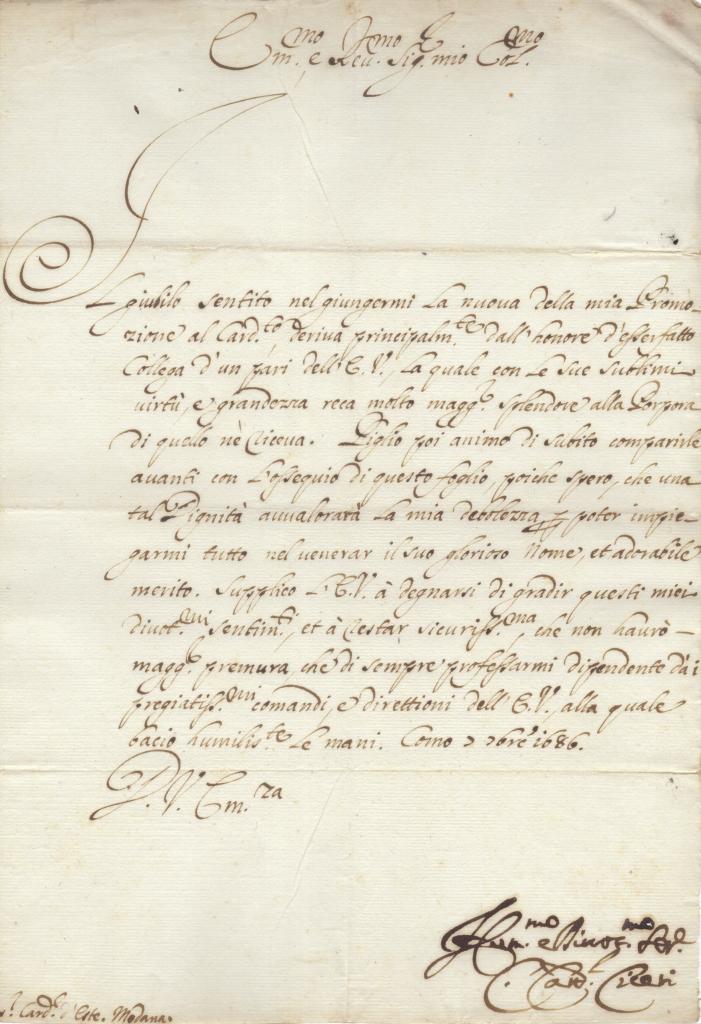 Em.mo e Rev.mo Sig.r mio Col.mo
Il giubilo sentito nel giungermi la nuova della mia Promo-
zione al Card.to, deriva principalm.te dall'honore d'esser fatto
Collega d'un pari dell'E.V., la quale con le sue sublimi
virtù, e grandezza reca molto magg.r splendore alla Porpora
di quello nè riceva. Piglio poi animo di subito comparirle
avanti con l'ossequio di questo foglio, poiche spero, che una
tal Dignità avvalorarà la mia debolezza, p poter impie-
garmi tutto nel venerar il suo glorioso Nome, et adorabile
merito. Supplico l'E.V. à degnarsi di gradir questi miei
divot.mi sentim.ti, et à restar sicuriss.ma, che non haurò
magg.r premura, che di sempre professarmi dipendente dà i
pregiatiss.mi comandi, e direttioni dell'E.V., alla quale
bacio humilis.te le mani. Como 7 7bre 1686.
D. V. Em.za
Hum.mo e Divot.mo Ser.r
C. Card.l Ciceri
s.r Card.l d'Este. Modana.